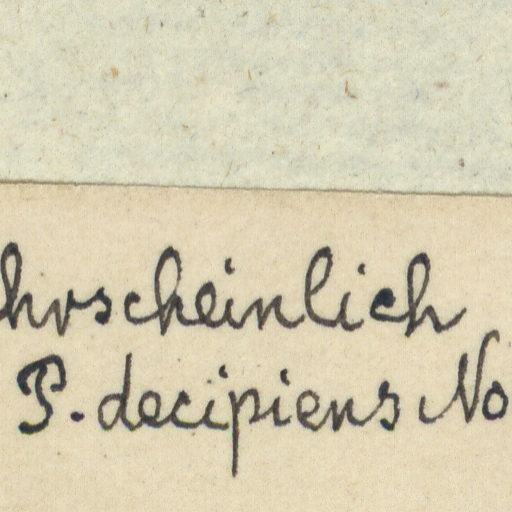 hrscheinlich
P. decipiens No